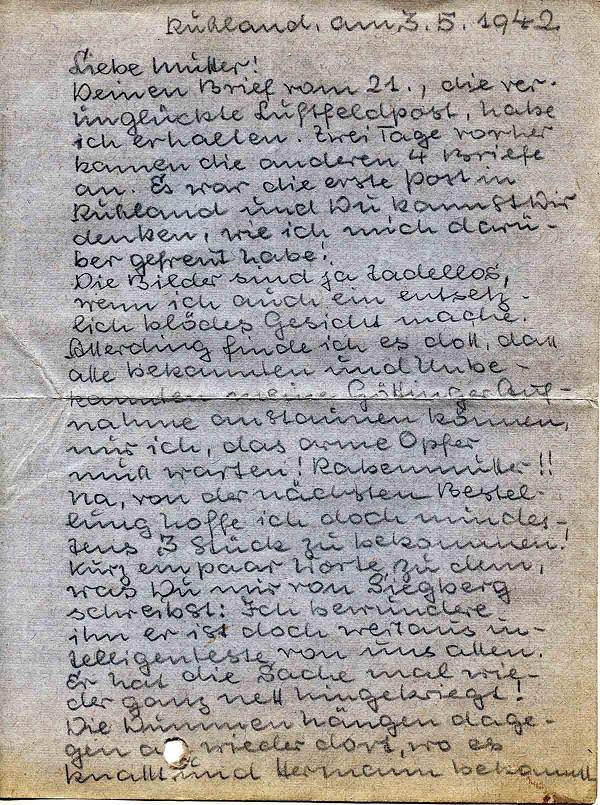 Rußland, am 3.5.1942
Liebe Mutter!
Deinen Brief vom 21., die ver-
unglückte Luftfeldpost, habe
ich erhalten. Zwei Tage vorher
kamen die anderen 4 Briefe
an. Es war die erste Post in
Rußland und Du kannst Dir
denken, wie ich mich darü-
ber gefreut habe!
Die Bilder sind ja tadellos,
wenn ich auch ein entsetz-
lich blödes Gesicht mache.
Allerding finde ich es doll, daß
alle bekannten und Unbe-
kannten meine Göttinger Auf-
nahme anstaunen können,
nur ich, das arme Opfer
muß warten! Rabenmutter!!
Na, von der nächsten Bestel-
lung hoffe ich doch mindes-
tens 3 Stück zu bekommen.
Kurz ein paar Worte zu dem,
was Du mir von Siegberg
schreibst: Ich bewundere
ihn er ist doch weitaus in-
telligenteste von uns allen.
Er hat die Sache mal wie-
der ganz nett hingekriegt!
Die Dummen hängen dage-
gen wieder dort, wo es
knallt und Hermann bekommt